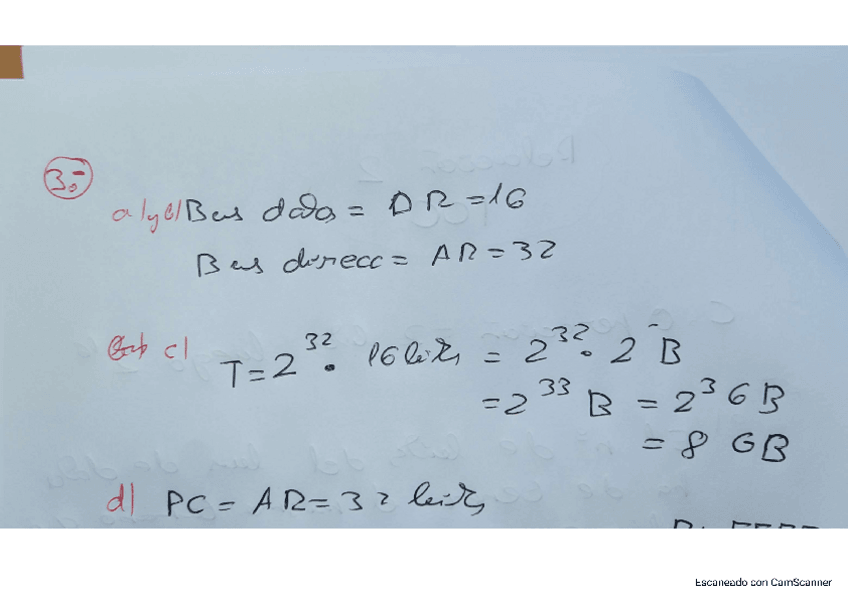 3.-
a/y b/ Bus datos = DR = 16
Bus direcc = AR = 32
c/ T = 2^32 · 16 bits = 2^32 · 2 B
= 2^33 B = 2^3 GB
= 8 GB
d/ PC = AR = 32 bits
Escaneado con CamScanner